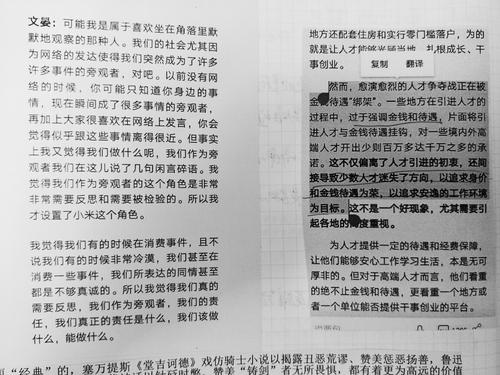 文晏：可能我是属于喜欢坐在角落里默
默地观察的那种人。我们的社会尤其因
为网络的发达使得我们突然成为了许多
许多事件的旁观者，对吧。以前没有网
络的时候，你可能只知道你身边的事
情，现在瞬间成了很多事情的旁观者，
再加上大家很喜欢在网络上发言，你会
觉得似乎跟这些事情离得很近。但事实
上我又觉得我们做什么呢，我们作为旁
观者我们在这儿说了几句闲言碎语。我
觉得我们作为旁观者的这个角色是非常
非常需要反思和需要被检验的。所以我
才设置了小米这个角色。
我觉得我们有的时候在消费事件，且不
说我们有的时候非常冷漠，我们甚至在
消费一些事件，我们所表达的同情甚至
都是不够真诚的。所以我觉得我们真的
需要反思，我们作为旁观者，我们的责
任，我们真正的责任是什么，我们该做
什么，能做什么。
地方还配套住房和实行零门槛落户，为的
就是让人才能够光顾当地、扎根成长、干
事创业。
复制 翻译
然而，愈演愈烈的人才争夺战正在被
金钱待遇“绑架”。一些地方在引进人才的
过程中，过于强调金钱和待遇，片面将引
进人才与金钱待遇挂钩，对一些境内外高
端人才开出少则百万多达千万之多的承
诺。这不仅偏离了人才引进的初衷，还间
接导致少数人才迷失了方向，以追求身价
和金钱待遇为荣，以追求安逸的工作环境
为目标。这不是一个好现象，尤其需要引
起各地的高度重视。
为人才提供一定的待遇和经费保障，
让他们能够安心工作学习生活，本是无可
厚非的。但对于高端人才而言，他们看重
的绝不止金钱和待遇，更看重一个地方或
者一个单位能否提供干事创业的平台。
“经典”的，塞万提斯《堂吉诃德》戏仿骑士小说以揭露丑恶荒谬、赞美惩恶扬善，鲁迅
赞美“铸剑”者无所畏惧，都有着更为高远的价值